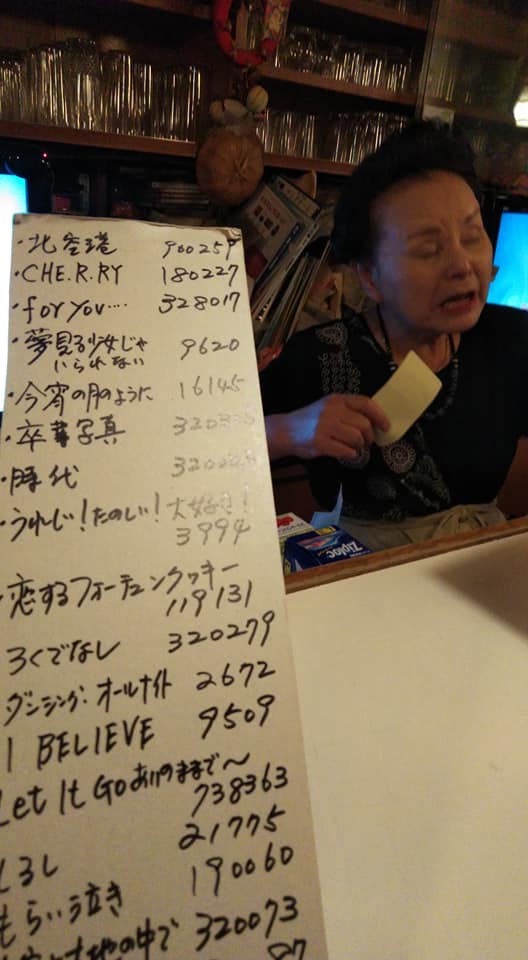 ・北空港 900259
・CHE.R.RY 180227
・for you.... 328017
・夢見る少女じゃ
いられない 9620
・今宵の月のように 16145
・卒業写真
・時代
・うれしい!たのしい!大好き!
3994
・恋するフォーチュンクッキー
119131
ろくでなし 320279
ダンシング・オールナイト 2672
I BELIEVE 9509
Let It Go ありのままで〜
738363
しるし 21775
もらい泣き 190060
の中で 320073
87
Ziploc